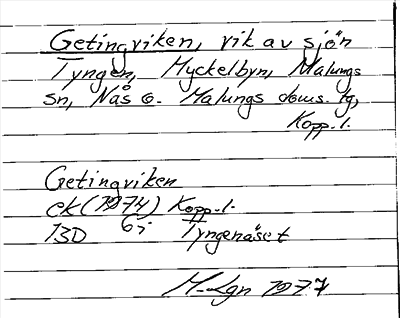 Getingviken, vik av sjön
Tyngen, Myckelbyn, Malungs
sn, Nås o. Malungs doms. tg,
Kopp. l.
Getingviken
ek (1974) Kopp. l.
13D 6i Tyngenäset
M-Lgn 1977